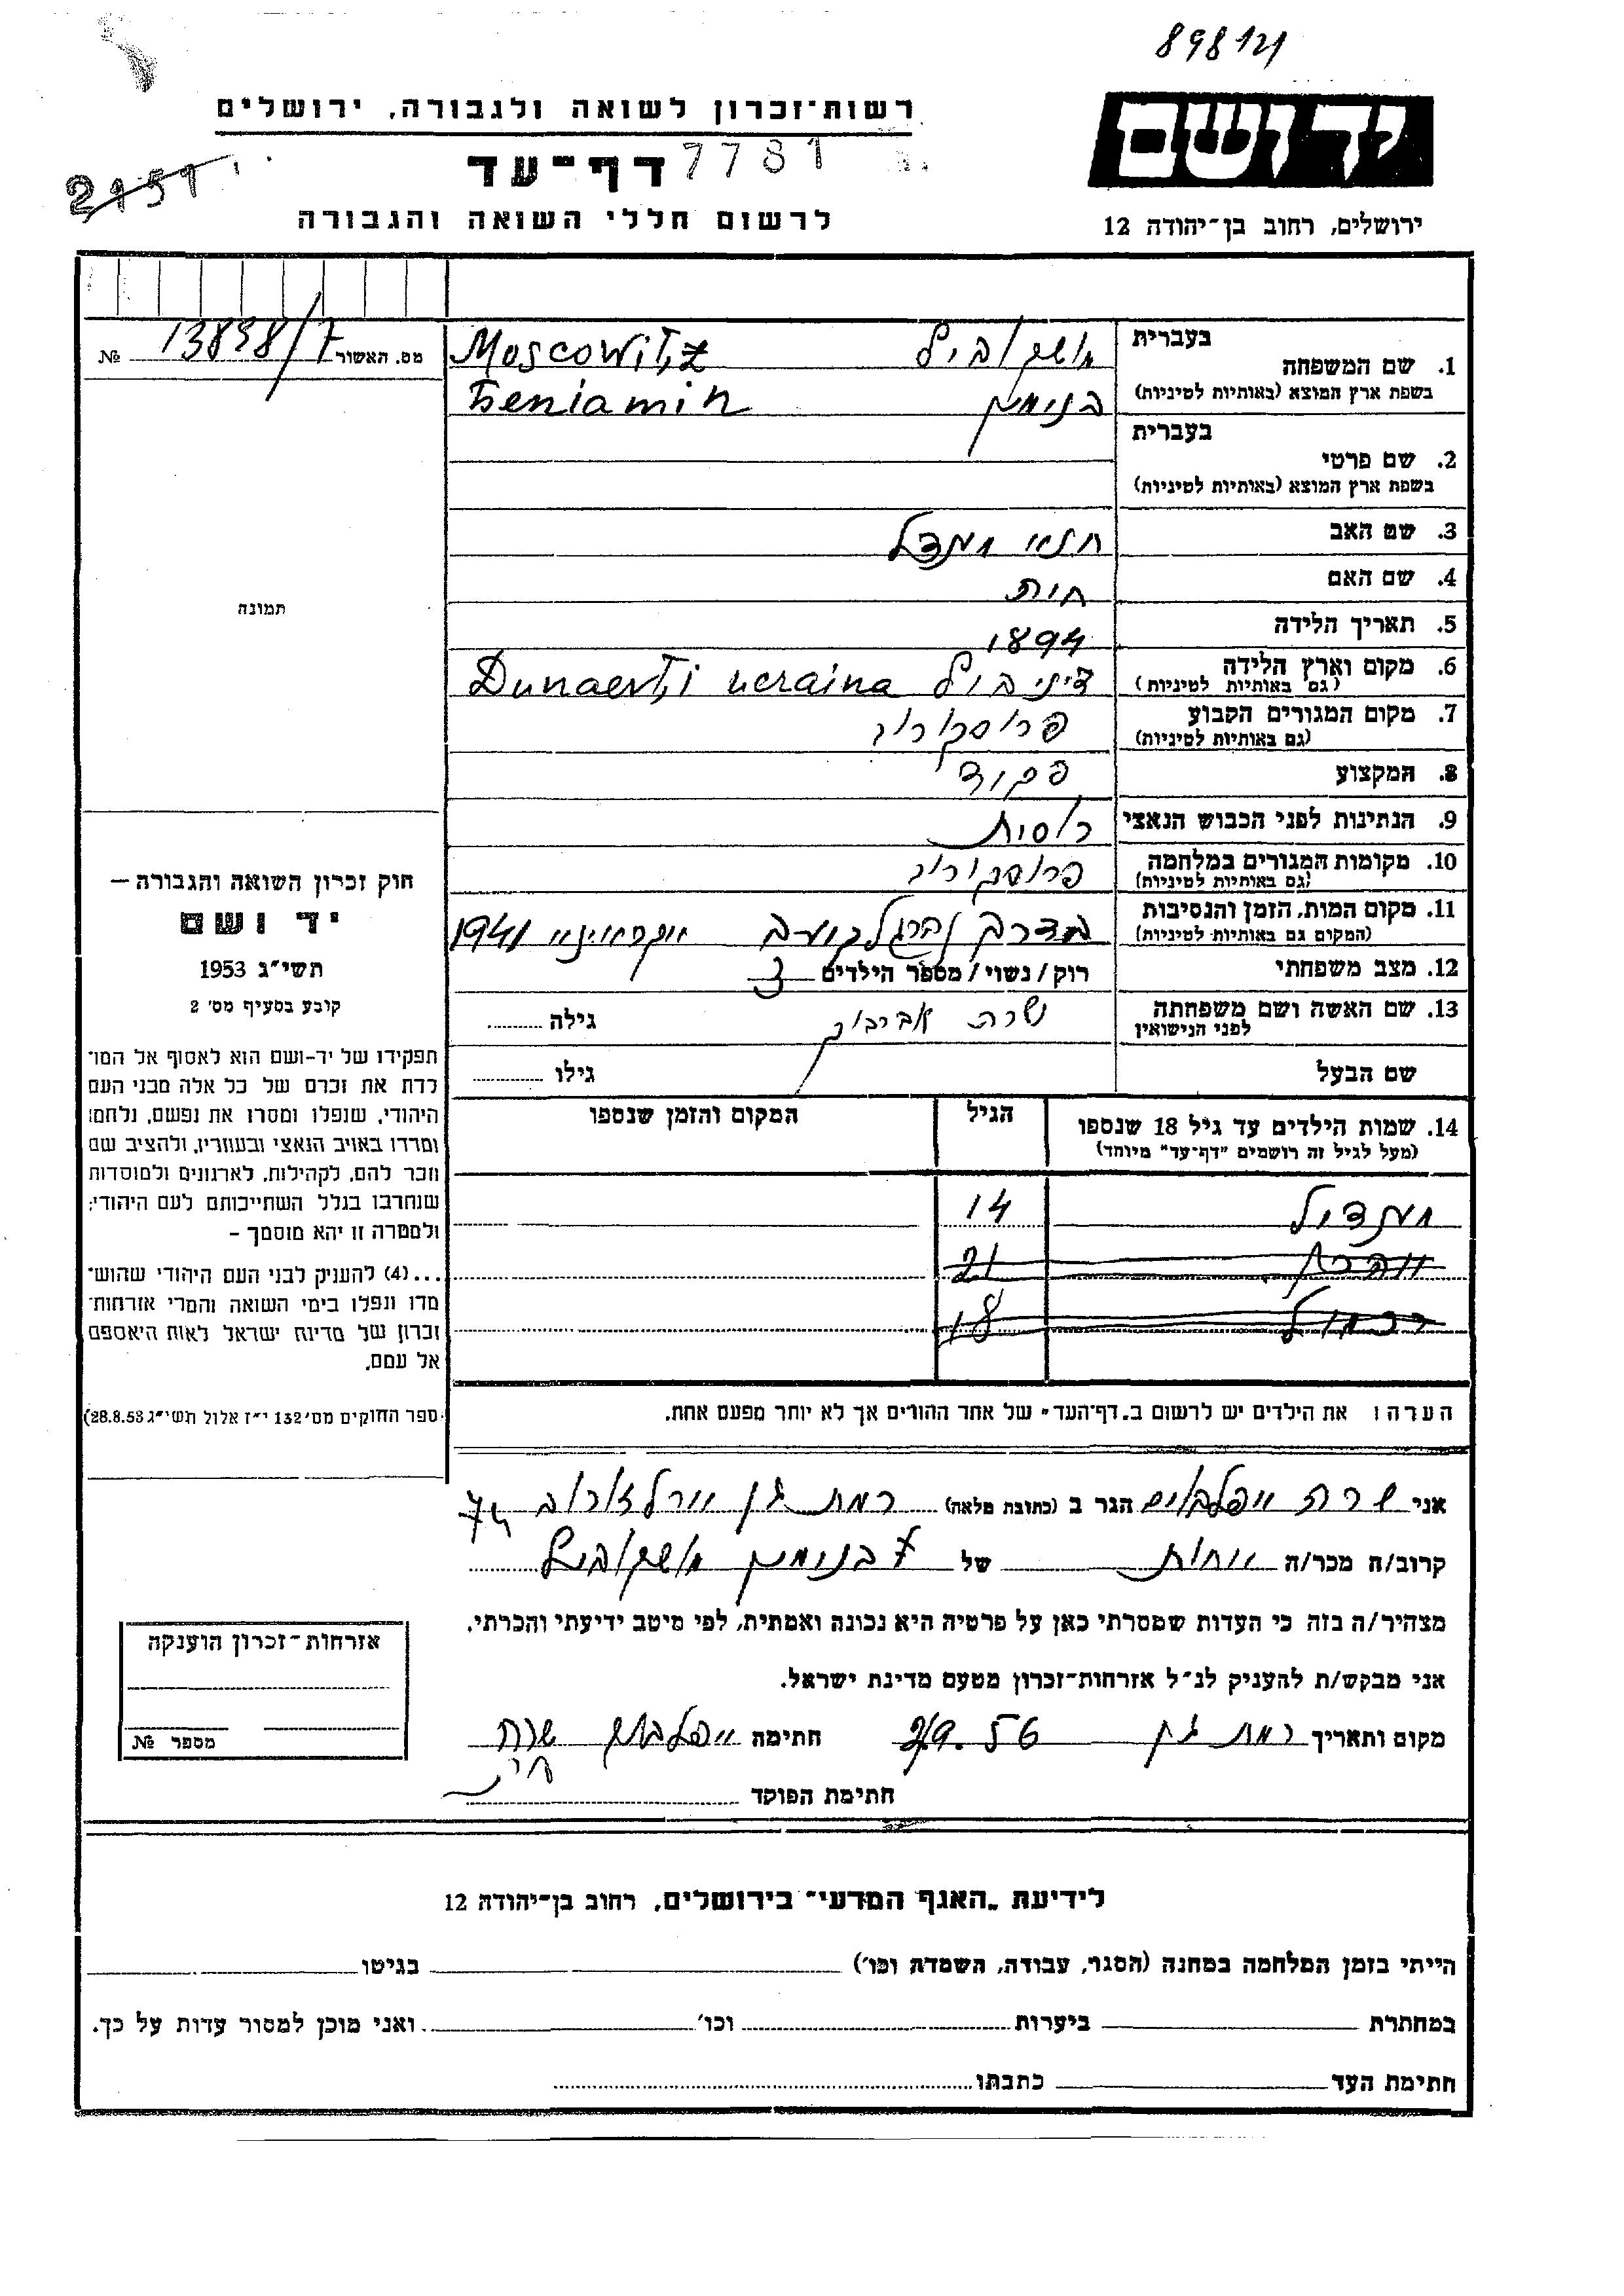 898121
רשות־זכרון לשואה ולגבורה, ירושלים
יד ושם
דף־עד 7781
2151
לרשום חללי השואה והגבורה
ירושלים, רחוב בן־יהודה 12
מס. האשור 13898/7 №
בעברית
1. שם המשפחה מושקוביץ Moscowitz
בשפת ארץ המוצא (באותיות לטיניות) בנימין Beniamin
בעברית
2. שם פרטי
בשפת ארץ המוצא (באותיות לטיניות)
3. שם האב מנדל
4. שם האם חית
5. תאריך הלידה 1894
6. מקום וארץ הלידה Dunaevti ucraina
(גם באותיות לטיניות)
7. מקום המגורים הקבוע פרוסקורוב
(גם באותיות לטיניות)
8. המקצוע פקיד
9. הנתינות לפני הכבוש הנאצי רוסית
10. מקומות המגורים במלחמה פרוסקורוב
(גם באותיות לטיניות)
11. מקום המות, הזמן והנסיבות 1941
(המקום גם באותיות לטיניות)
12. מצב משפחתי רוק/נשוי/מספר הילדים 3
13. שם האשה ושם משפחתה שרה גילה
לפני הנישואין
שם הבעל גילו
14. שמות הילדים עד גיל 18 שנספו הגיל המקום והזמן שנספו
(מעל לגיל זה רושמים "דף־עד" מיוחד)
מנדיל 14
21
18
הערה: את הילדים יש לרשום ב„דף־העד" של אחד ההורים אך לא יותר מפעם אחת.
תמונה
חוק זכרון השואה והגבורה —
יד ושם
תשי"ג 1953
קובע בסעיף מס' 2
תפקידו של יד-ושם הוא לאסוף אל המו־
לדת את זכרם של כל אלה מבני העם
היהודי, שנפלו ומסרו את נפשם, נלחמו
ומרדו באויב הנאצי ובעוזריו, ולהציב שם
וזכר להם, לקהילות, לארגונים ולמוסדות
שנחרבו בגלל השתייכותם לעם היהודי;
ולמטרה זו יהא מוסמך –
...(4) להעניק לבני העם היהודי שהוש־
מדו ונפלו בימי השואה והמרי אזרחות־
זכרון של מדינת ישראל לאות היאספם
אל עמם.
(ספר החוקים מס' 132 י"ז אלול תשי"ג 28.8.53)
אני שרה הגר ב (כתובת מלאה) רמת גן 74
קרוב/ה מכר/ה אחות של בנימין מושקוביץ
מצהיר/ה בזה כי העדות שמסרתי כאן על פרטיה היא נכונה ואמתית, לפי מיטב ידיעתי והכרתי.
אני מבקש/ת להעניק לנ"ל אזרחות־זכרון מטעם מדינת ישראל.
מקום ותאריך רמת גן 2/9.56 חתימה שרה
חתימת הפוקד
אזרחות־זכרון הוענקה
מספר №
לידיעת „האגף המדעי" בירושלים, רחוב בן־יהודה 12
הייתי בזמן המלחמה במחנה (הסגר, עבודה, השמדה וכו') בגיטו
במחתרת ביערות וכו' ואני מוכן למסור עדות על כך.
חתימת העד כתבתו